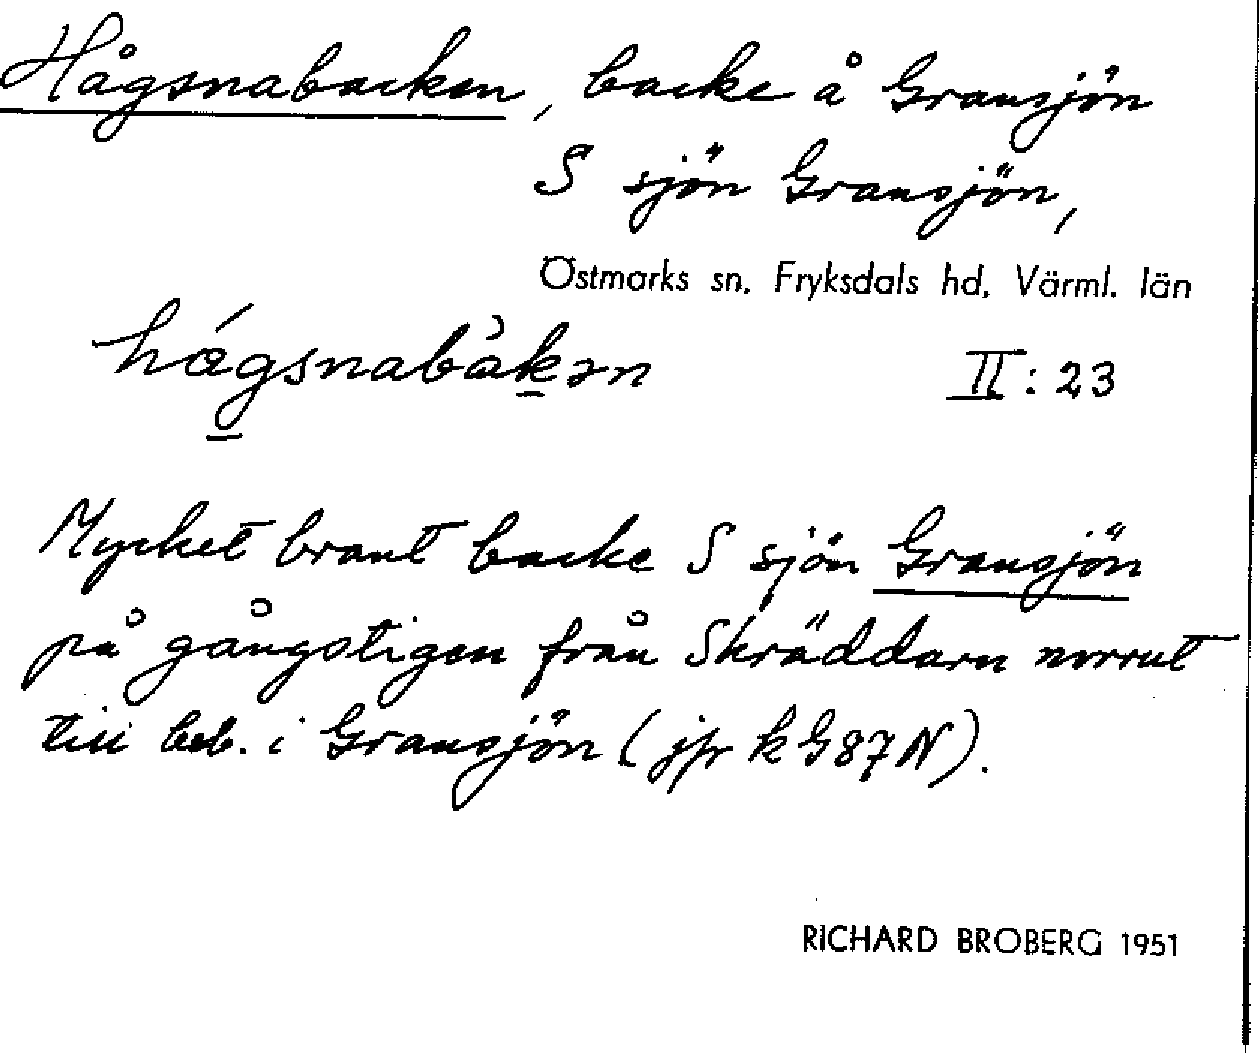 Hågsnabacken, backe å Gransjön
S sjön Gransjön,
Östmarks sn. Fryksdals hd. Värml. län
hǿgsnabàkən II: 23
Mycket brant backe S sjön Gransjön
på gångstigen från Skräddarn norrut
till beb. i Gransjön (jfr k G87N).
RICHARD BROBERG 1951